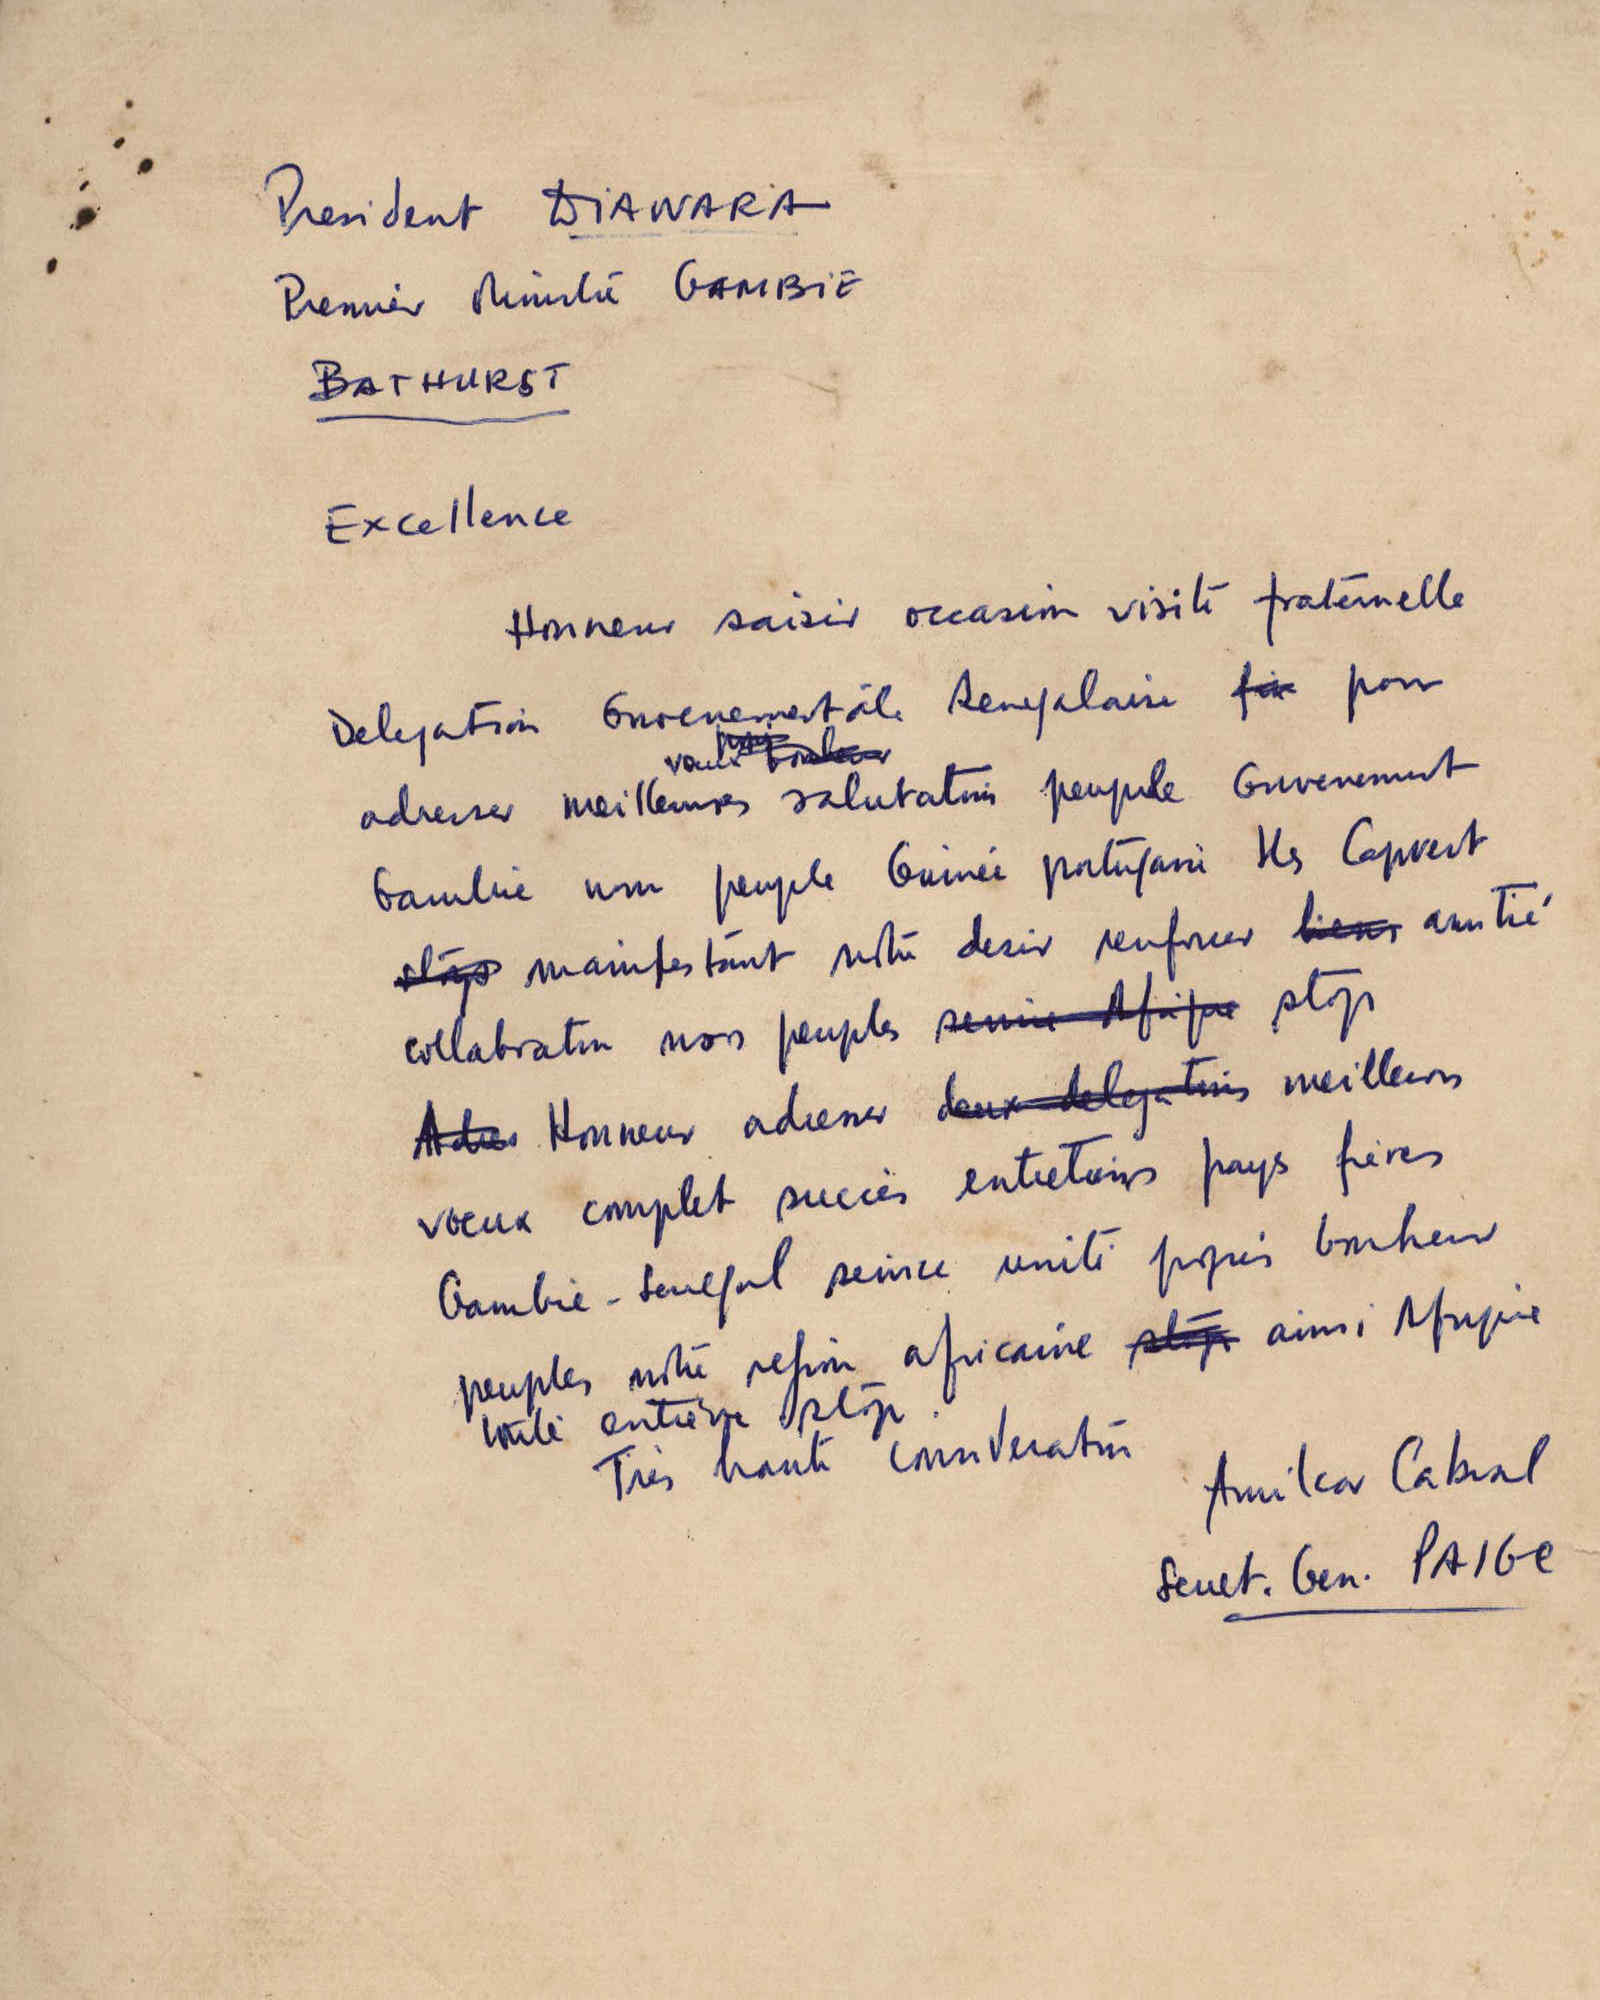 President DIAWARA
Premier Ministre GAMBIE
BATHURST
Excellence
Honneur saisir occasion visite fraternelle
Delegation Gouvernementale Senegalaise pour
voeux bonheur
adresser meilleures salutations peuple Gouvernement
Gambie nom peuple Guinée portugaise Iles Capvert
stop manifestant notre desir renforcer liens amitié
collaboration nos peuples service Afrique stop
Adres Honneur adresser deux delegations meilleurs
voeux complet succès entretiens pays frères
Gambie - Senegal service unité progrès bonheur
peuples notre region africaine stop ainsi Afrique
toute entière stop.
Très haute consideration
Amilcar Cabral
Secret. Gen. PAIGC